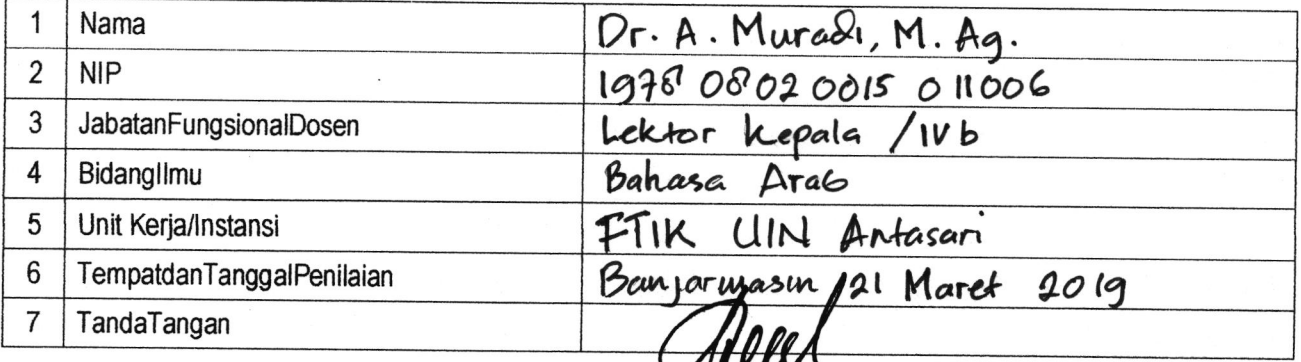 1 Nama Dr. A. Muradi, M. Ag.
2 NIP 1978 0802 0015 011006
3 JabatanFungsionalDosen Lektor Kepala /IVb
4 BidangIlmu Bahasa Arab
5 Unit Kerja/Instansi FTIK UIN Antasari
6 TempatdanTanggalPenilaian Banjarmasin /21 Maret 2019
7 TandaTangan